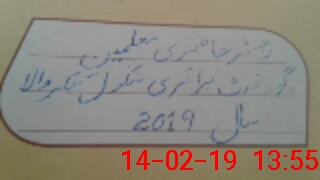 رجسٹر حاضری معلمین
گورنمنٹ پرائمری سکول
سال 2019
14-02-19 13:55